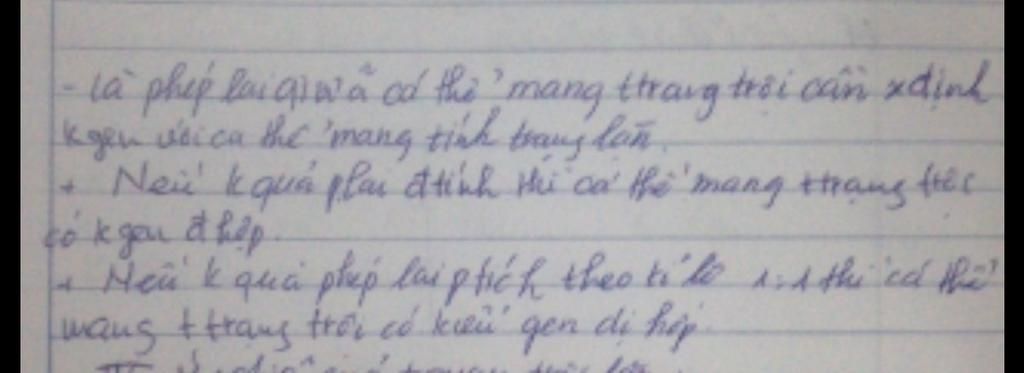 - là phép lai giữa cá thể mang ttrạng trội cần xđịnh
kgen với cá thể mang tính trạng lặn.
+ Nếu kquả plai đtính thì cá thể mang ttrạng trội
có kgen đhợp.
+ Nếu kquả phép lai ptích theo tỉ lệ 1:1 thì cá thể
mang ttrạng trội có kiểu gen dị hợp.